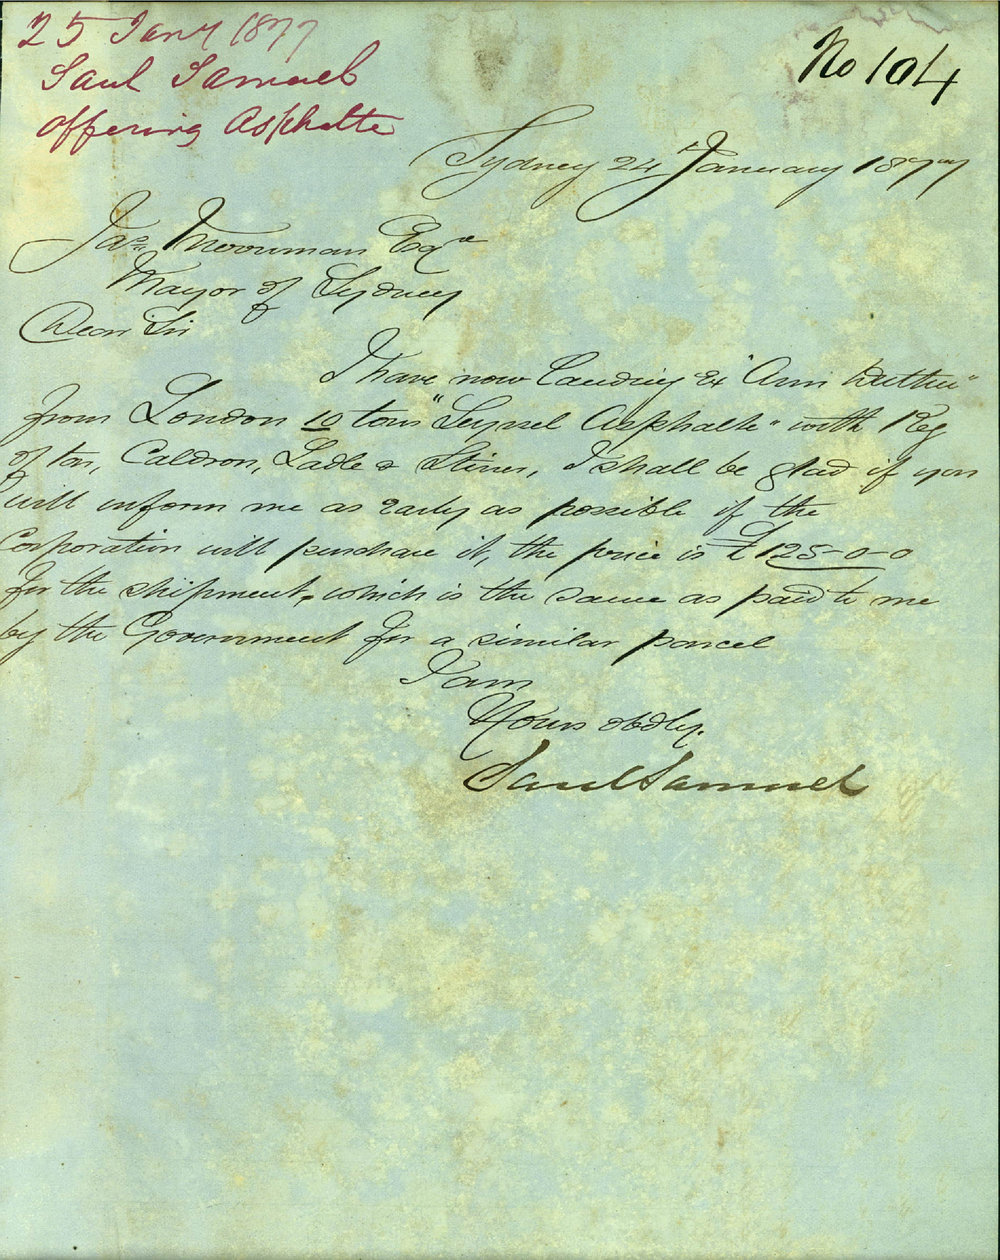 25 Jany 1877
Saul Samuel
offering Asphalte
No 104
Sydney 24 January 1877
Jas. Merriman Esqre
Mayor of Sydney
Dear Sir
I have now landing Ex "Ann Duthie"
from London 10 tons "Seyssel Asphalte" with Keg
of tar, Caldron, Ladle & Stirrer, I shall be glad if you
will inform me as early as possible if the
Corporation will purchase it, the price is £125-0-0
for the shipment, which is the same as paid to me
by the Government for a similar parcel
I am
Yours obdly.
Saul Samuel